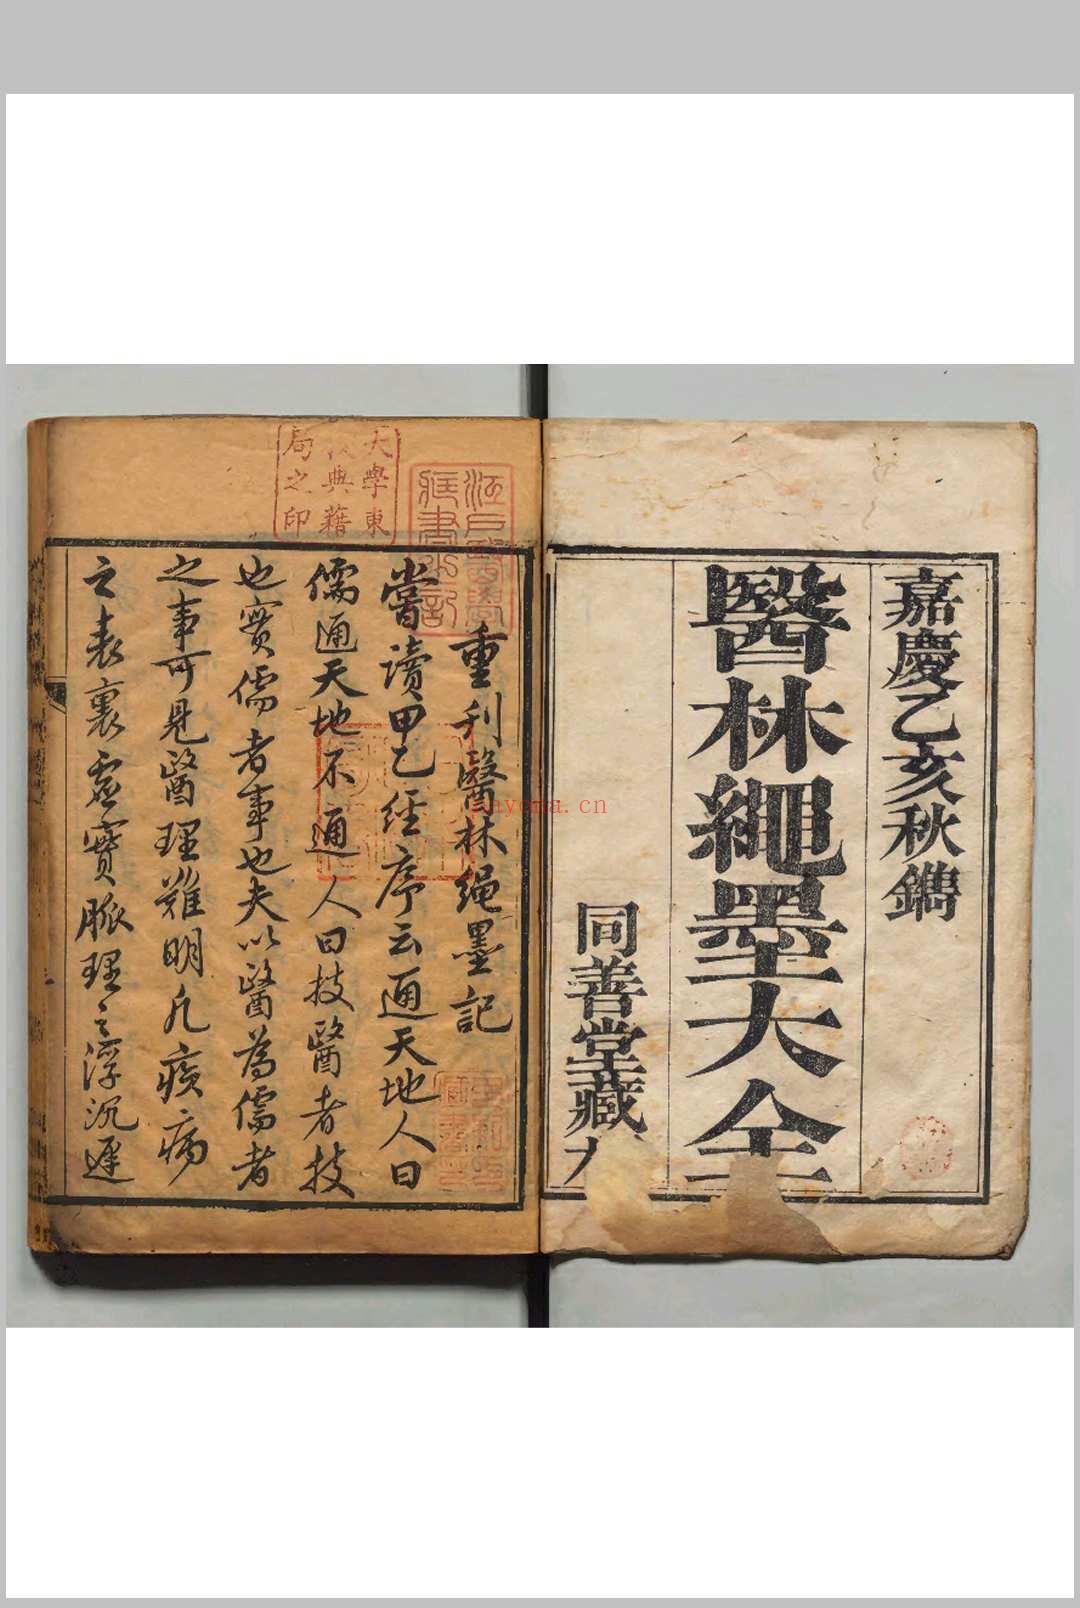 嘉慶乙亥秋鐫
醫林繩墨大全
同善堂藏
重刋醫林繩墨記
嘗讀甲乙經序云通天地人曰
儒通天地不通人曰技醫者技
也實儒者事也夫以醫為儒者
之事可見醫理難明凡瘓病
之表裏虛實脈理之浮沉遲
大學東
典籍
局之印
江戶醫學
藏書之記
nayona.cn